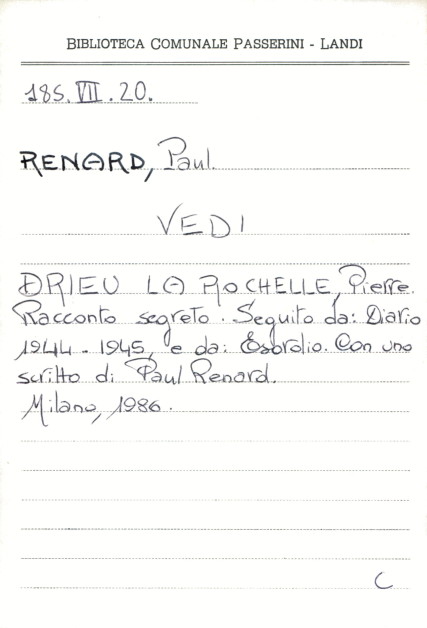 BIBLIOTECA COMUNALE PASSERINI - LANDI
185.VII.20.
RENARD, Paul.
VEDI
DRIEU LA ROCHELLE, Pierre.
Racconto segreto. Seguito da: Diario
1944-1945, e da: Esordio. Con uno
scritto di Paul Renard.
Milano, 1986.
C